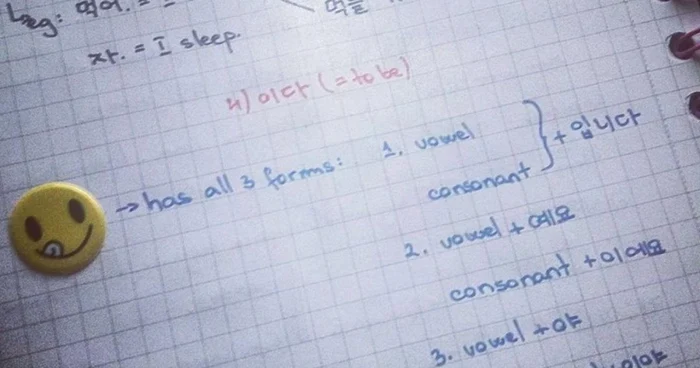 eg: 먹어. =
자. = I sleep.
4) 이다 (= to be)
→ has all 3 forms: 1. vowel
consonant } + 입니다
2. vowel + 예요
consonant + 이에요
3. vowel + 야
이야